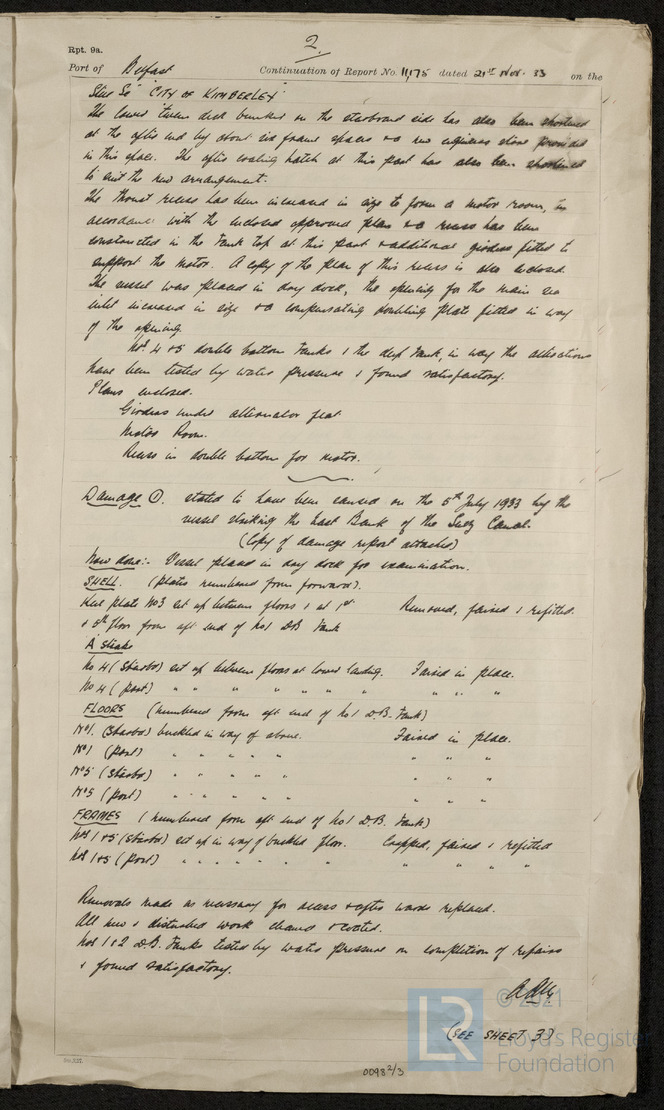 2.
Rpt. 9a.
Port of Belfast Continuation of Report No. 11,175 dated 21st Nov. 33 on the
Steel Sc "CITY OF KIMBERLEY"
The lower tween deck bunker on the starboard side has also been shortened
at the after end by about six frame spaces & a new engineers store provided
in this space. The after coaling hatch at this part has also been shortened
to suit the new arrangement.
The thrust recess has been increased in size to form a motor room, in
accordance with the enclosed approved plan & a recess has been
constructed in the tank top at this part & additional girders fitted to
support the motor. A copy of the plan of this recess is also enclosed.
The vessel was placed in dry dock, the opening for the main sea
inlet increased in size & a compensating doubling plate fitted in way
of the opening.
Nos 4 & 5 double bottom tanks & the deep tank, in way the alterations
have been tested by water pressure & found satisfactory.
Plans enclosed.
Girders under alternator flat
Motor Room.
Recess in double bottom for motor.
Damage ①. stated to have been caused on the 5th July 1933 by the
vessel striking the East Bank of the Suez Canal.
(Copy of damage report attached)
Now done:- Vessel placed in dry dock for examination.
SHELL. (plates numbered from forward).
Keel plate No3 set up between floors & at 1st Removed, faired & refitted.
& 5th floor from aft end of No1 DB Tank
A strake
No 4 (Starbd) set up between floors at lower landing. Faired in place.
No 4 (port) " " " " " " " " " "
FLOORS (numbered from aft end of No 1 D.B. Tank)
No1. (Starbd) buckled in way of above. Faired in place.
No1 (port) " " " " " " " "
No5 (Starbd) " " " " " " " "
No5 (port) " " " " " " " "
FRAMES (numbered from aft end of No 1 D.B. Tank)
Nos 1 & 5 (Starbd) set up in way of buckled floor. Cropped, faired & refitted
Nos 1 & 5 (port) " " " " " " " " " "
Removals made as necessary for access & afterwards replaced.
All new & disturbed work cleaned & coated.
Nos 1 & 2 D.B. Tanks tested by water pressure on completion of repairs
& found satisfactory.
(SEE SHEET 3)
© 2021
LR Lloyd's Register
Foundation
0098 2/3